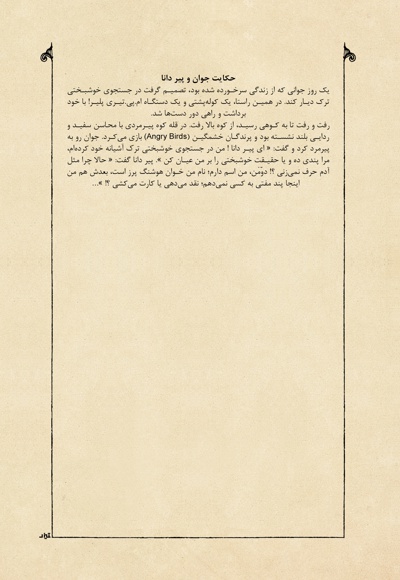 حکایت جوان و پیر دانا
یک روز جوانی که از زندگی سرخورده شده بود، تصمیم گرفت در جستجوی خوشبختی
ترک دیار کند. در همین راستا، یک کوله‌پشتی و یک دستگاه ام.پی.تیری پلیر! با خود
برداشت و راهی دور دست‌ها شد.
رفت و رفت تا به کوهی رسید، از کوه بالا رفت. در قله کوه پیرمردی با محاسن سفید و
ردایی بلند نشسته بود و پرندگان خشمگین (Angry Birds) بازی می‌کرد. جوان رو به
پیرمرد کرد و گفت: « ای پیر دانا ! من در جستجوی خوشبختی ترک آشیانه خود کرده‌ام،
مرا پندی ده و یا حقیقت خوشبختی را بر من عیان کن ». پیر دانا گفت: « حالا چرا مثل
آدم حرف نمی‌زنی ؟! دومن، من اسم دارم؛ نام من خوان هوشنگ پرز است، بعدش هم من
اینجا پند مفتی به کسی نمی‌دهم؛ نقد می‌دهی یا کارت می‌کشی ؟! »...